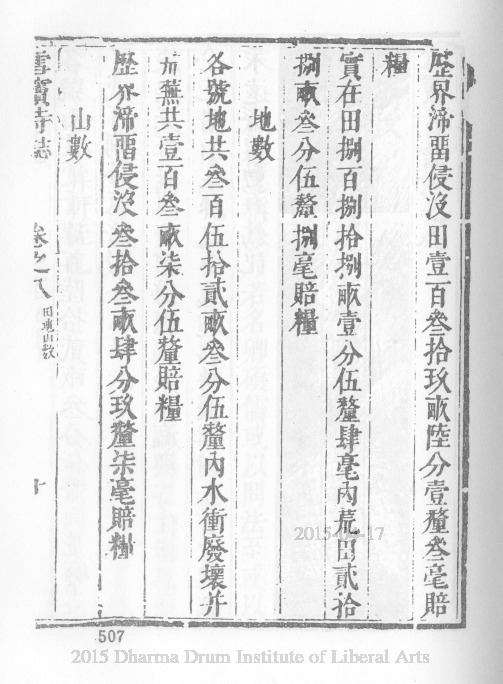 歷界滯畱侵沒田壹百叁拾玖畝陸分壹釐叁毫賠
糧
實在田捌百捌拾捌畝壹分伍釐肆毫內荒田貳拾
捌畝叁分伍釐捌毫賠糧
地數
各號地共叁百伍拾貳畝叁分伍釐內水衝廢壞并
荒蕪共壹百叁畝柒分伍釐賠糧
歷界滯畱侵沒叁拾叁畝肆分玖釐柒毫賠糧
山數
雪竇寺誌
卷之八
田地山數
十
507
2015-04-17
2015 Dharma Drum Institute of Liberal Arts